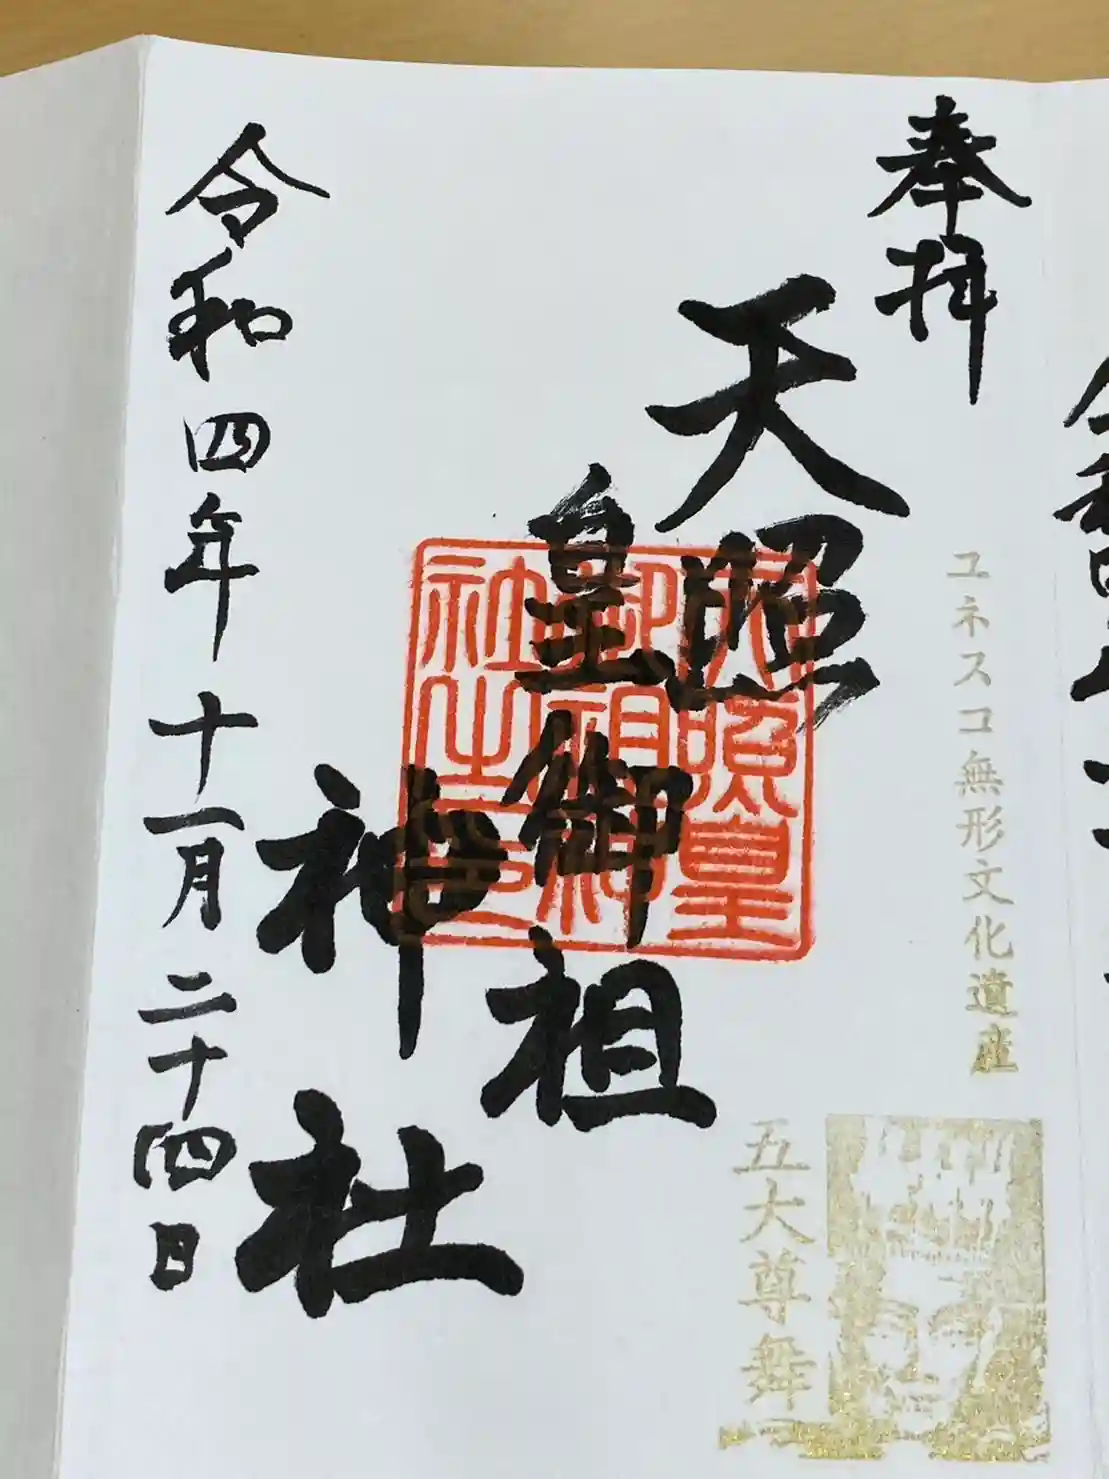 奉拝
ユネスコ無形文化遺産
五大尊舞
天照
皇御祖
神社
天照皇
御祖神
社之印
令和四年十一月二十四日